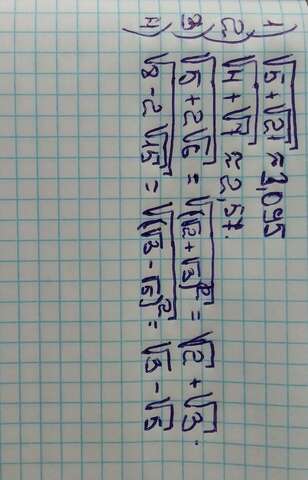 1) √(5+√21) ≈ 3,095
2) √(4+√7) ≈ 2,57.
3) √(5+2√6) = √((√2+√3)²) = √2+√3.
4) √(8-2√15) = √((√3-√5)²) = √3-√5